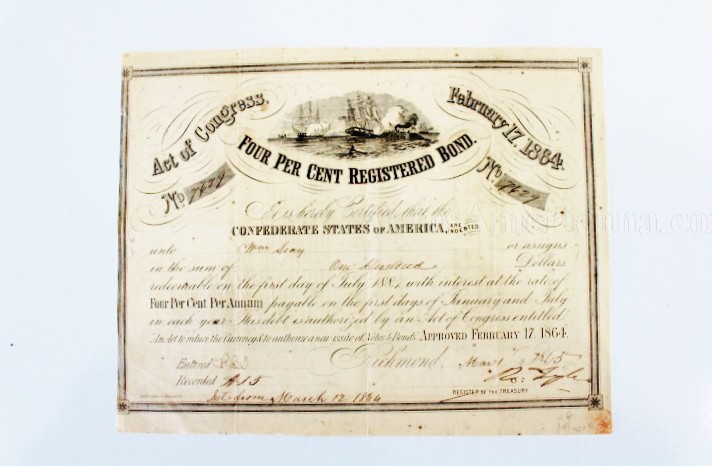 Act of Congress. February 17, 1864.
FOUR PER CENT REGISTERED BOND.
No No
It is hereby Certified, that the
CONFEDERATE STATES OF AMERICA, ARE INDEBTED
unto Wm Seay or assigns
in the sum of One Hundred Dollars
redeemable on the first day of July 188, with interest at the rate of
Four Per Cent Per Annum payable on the first days of January and July
in each year. This debt is authorized by an Act of Congress entitled
"An Act to reduce the Currency & to authorize a new issue of Notes & Bonds." APPROVED FEBRUARY 17, 1864.
Richmond, 1865
Entered
Recorded
Ro: Tyler
REGISTER OF THE TREASURY
Int. from March 12 1864